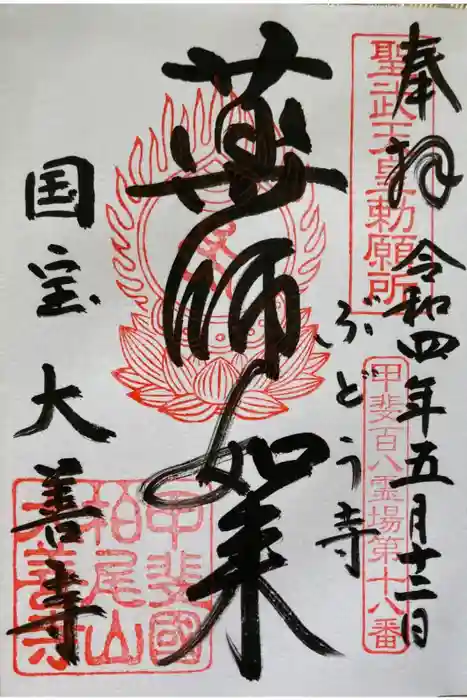 奉拝
令和四年五月十二日
聖武天皇勅願所
甲斐百八霊場第十八番
ぶどう寺
薬師如来
国宝 大善寺
甲斐國
柏尾山
大善寺